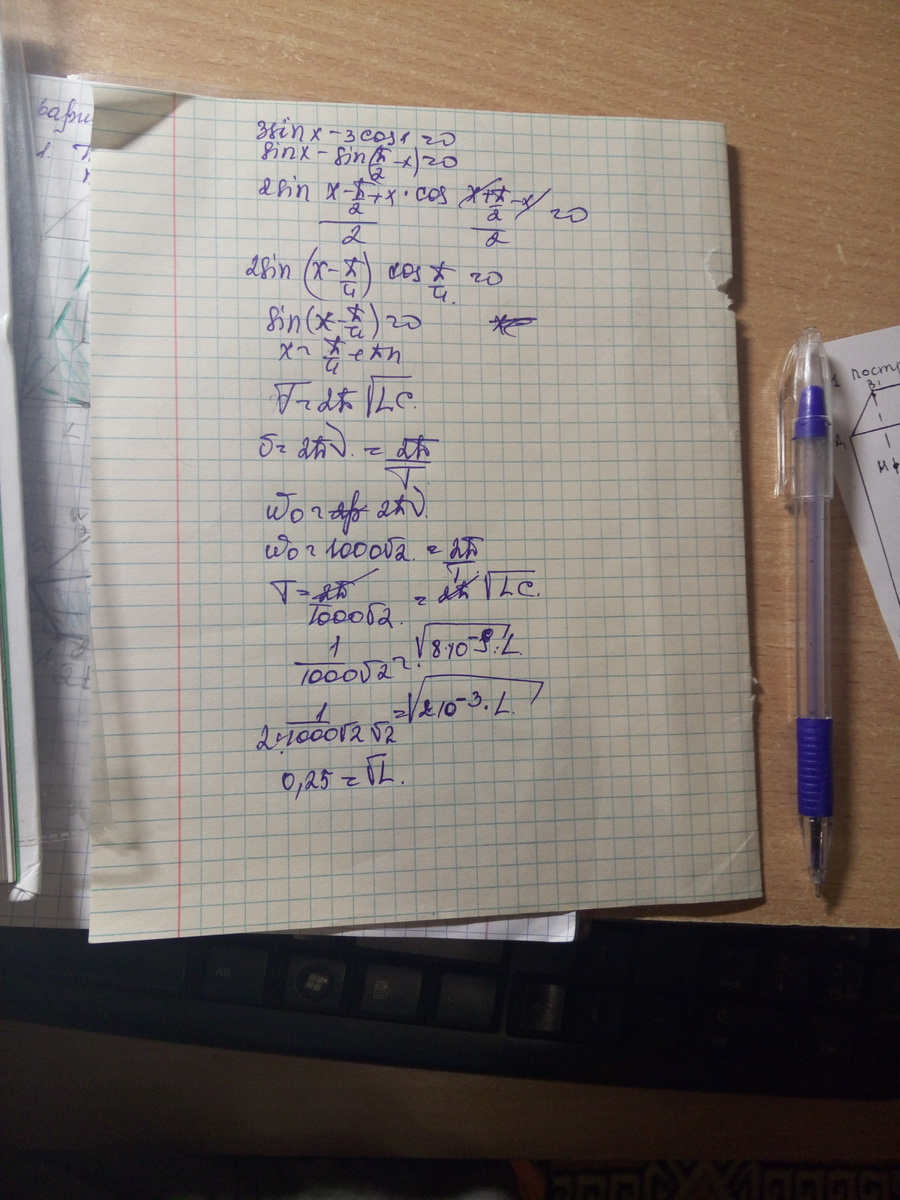 вари
1.
3sin x - 3cos x = 0
sin x - sin(π/2 - x) = 0
2sin (x - π/2 + x)/2 · cos (x + π/2 - x)/2 = 0
2sin (x - π/4) cos π/4 = 0
sin(x - π/4) = 0
x = π/4 + πn
T = 2π √LC.
= 2πν. = 2π/T
ω0 = 2πν.
ω0 = 1000√2. = 2π/T
T = 2π/1000√2. = 2π √LC.
1/1000√2 = √8·10⁻⁵·L.
2·1/1000√2√2 = √2·10⁻³·L.
0,25 = √L.
1 постр
B₁
A₁
M
Alt